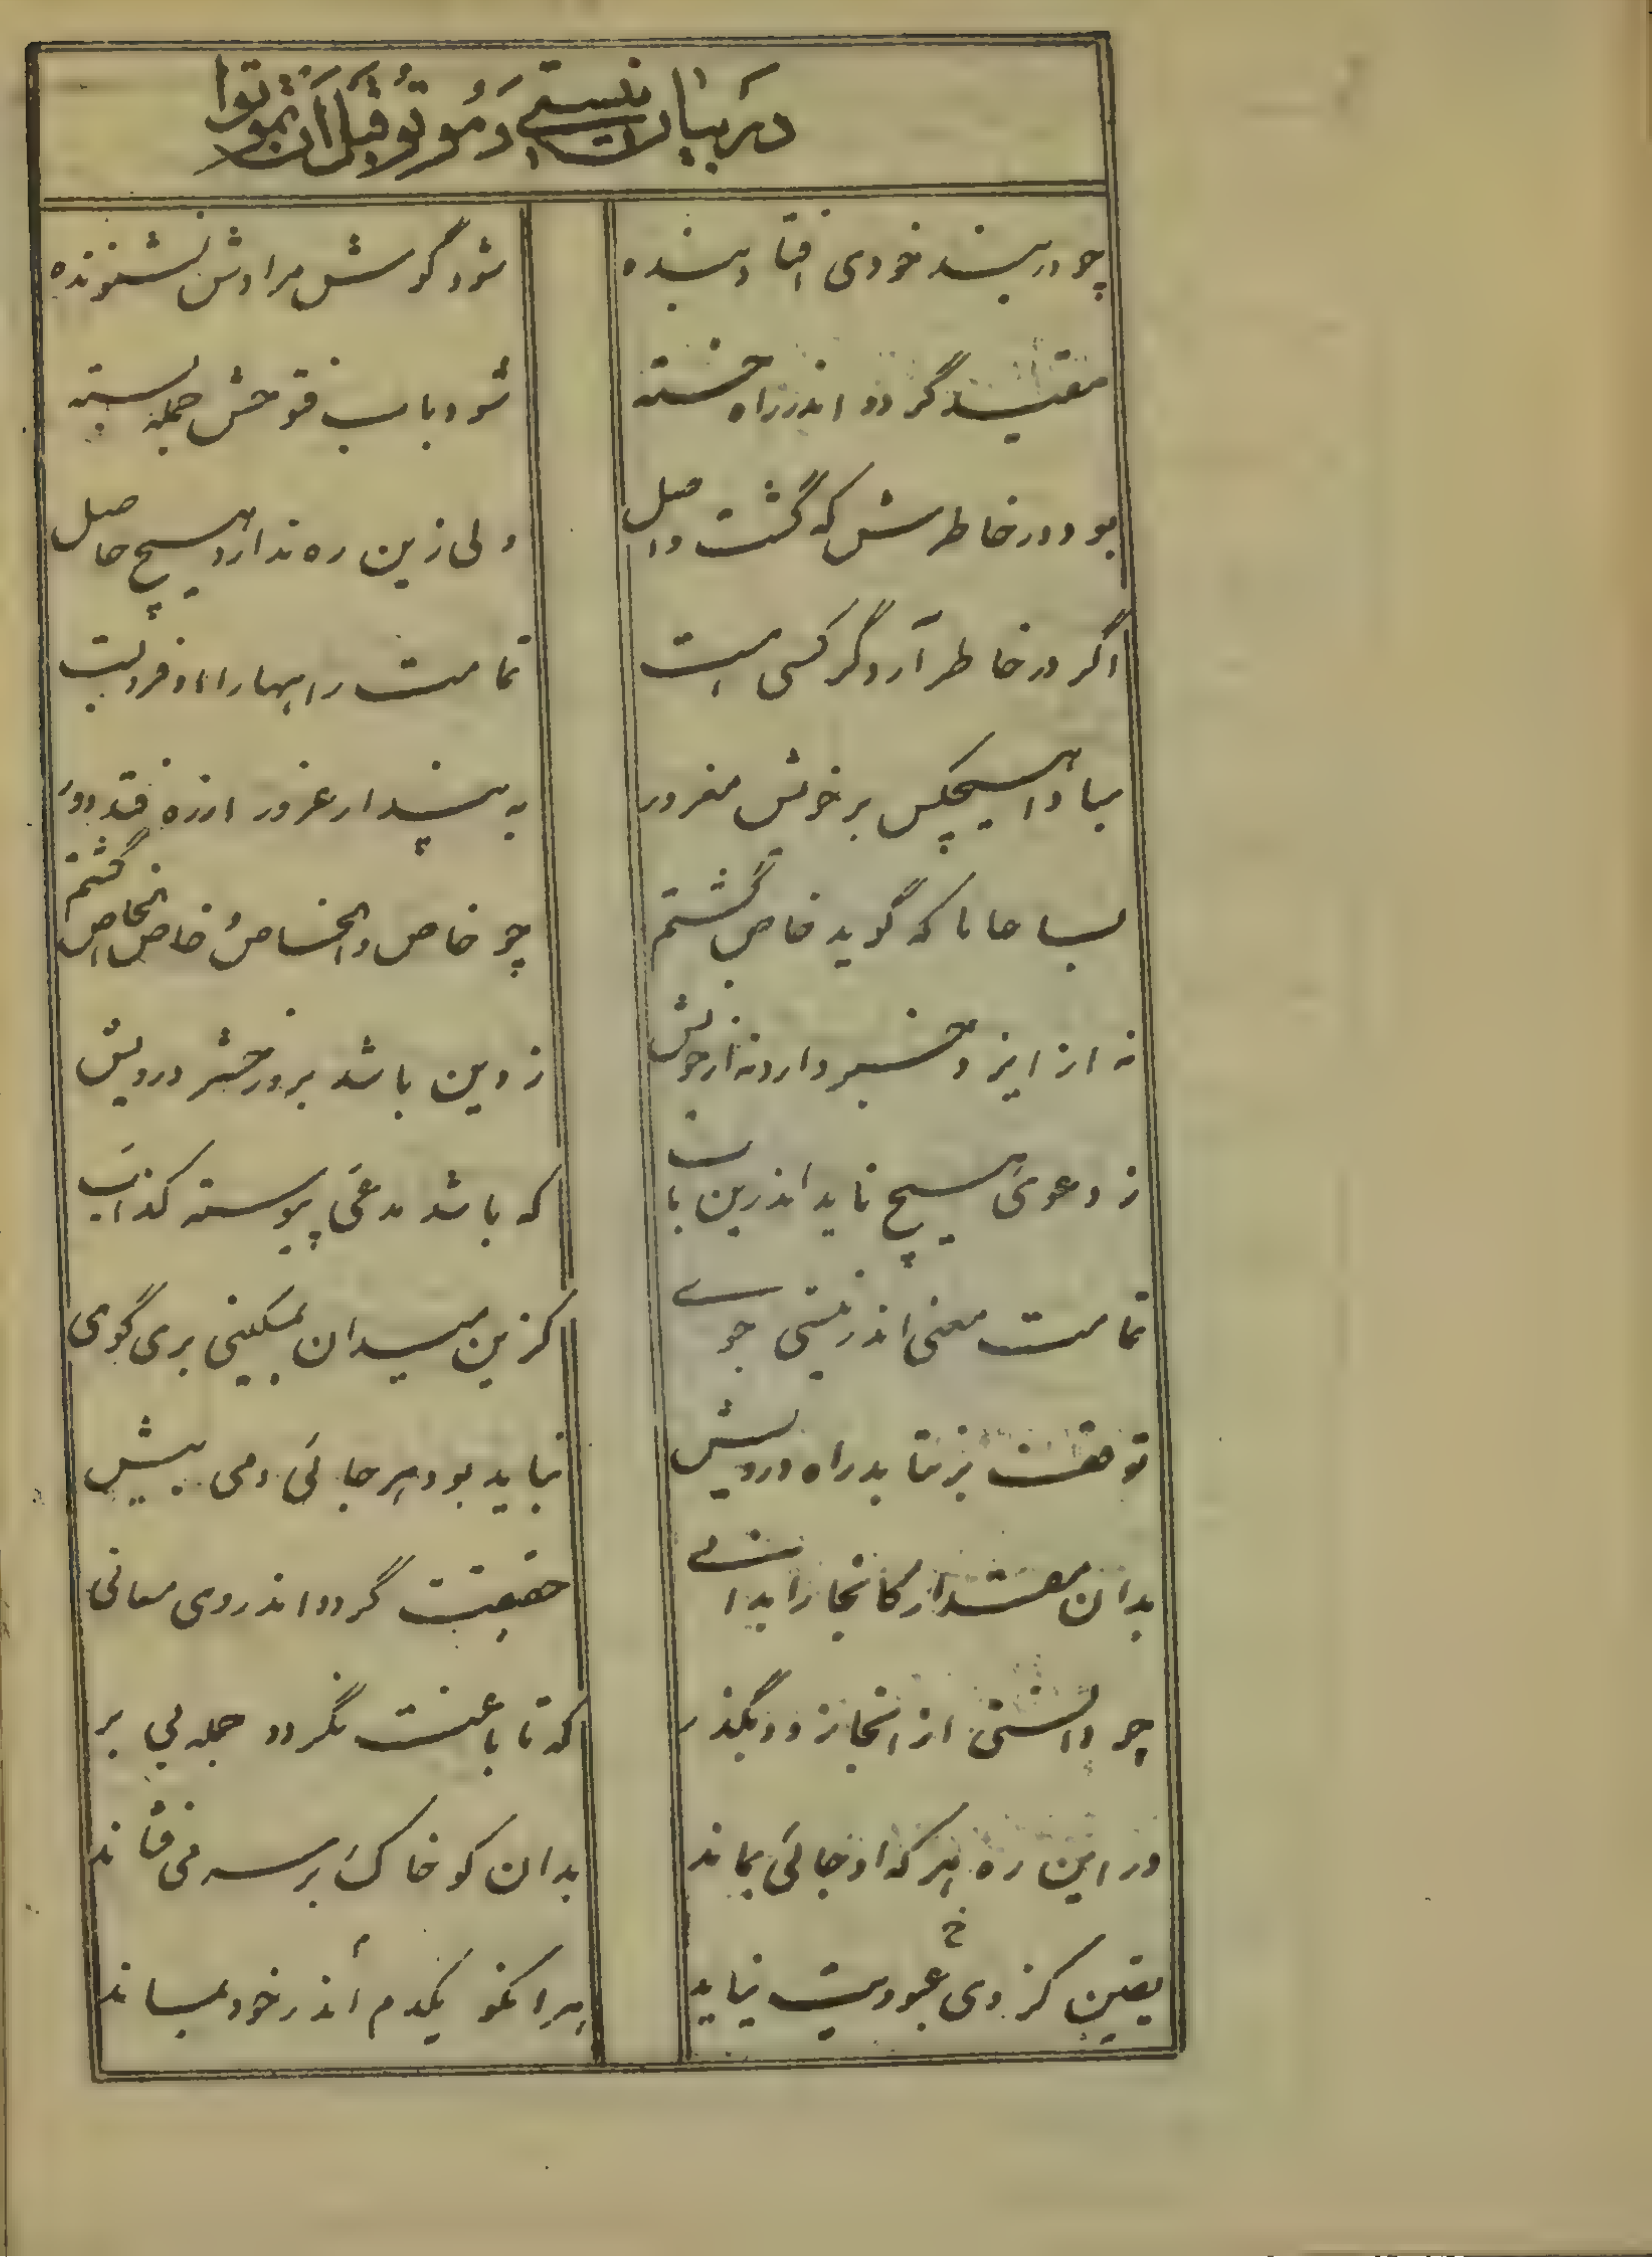 در بیان نیستی و مُوتُوا قَبلَ اَن تَمُوتُوا
چو در بند خودی افتاد بنده شود گوش مرادش نشنونده
مقید گردد اندر راه خسته شود باب فتوحش جمله بسته
بود در خاطرش که گشت واصل ولی زین ره ندارد هیچ حاصل
اگر در خاطر آرد گر کسی هست تمامت راهها را او فروبست
مبادا هیچکس بر خویش مغرور به پندار غرور از ره فتد دور
بسا جانا که گوید خاص گشتم چو خاص والخاص خاص الخاص گشتم
نه از ایزد خبر دارد نه از خویش ز دین باشد بروز حشر درویش
ز دعوی هیچ ناید اندرین باب که باشد مدعی پیوسته کذاب
تمامت معنی اندر نیستی جوی کزین میدان بمسکینی بری گوی
توقف برنتابد راه درویش نباید بود هر جائی دمی بیش
بدان مقدار کانجا را بدانی حقیقت گردد اندر وی معانی
چو دانستی از انجا زود بگذر که تا باعث نگردد جمله بی بر
در این ره هر که او جائی بماند بدان کو خاک بر سر می فشاند
یقین کز وی عبودیت نیاید هر انکو یکدم اندر خود بماند